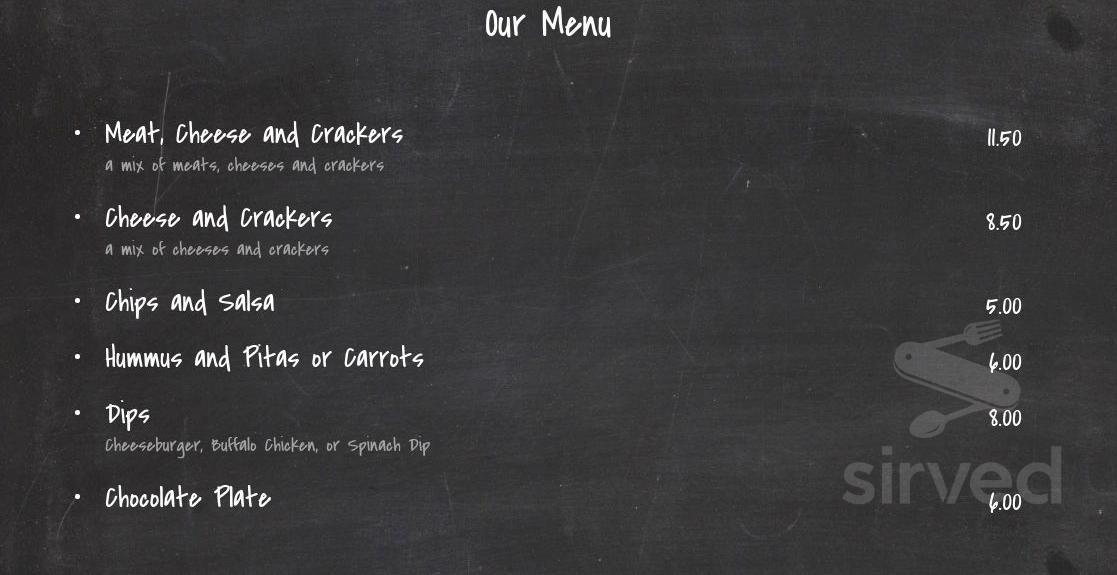 Our Menu
• Meat, Cheese and Crackers 11.50
a mix of meats, cheeses and crackers
• Cheese and Crackers 8.50
a mix of cheeses and crackers
• Chips and Salsa 5.00
• Hummus and Pitas or Carrots 6.00
• Dips 8.00
Cheeseburger, Buffalo Chicken, or Spinach Dip
sirved
• Chocolate Plate 6.00